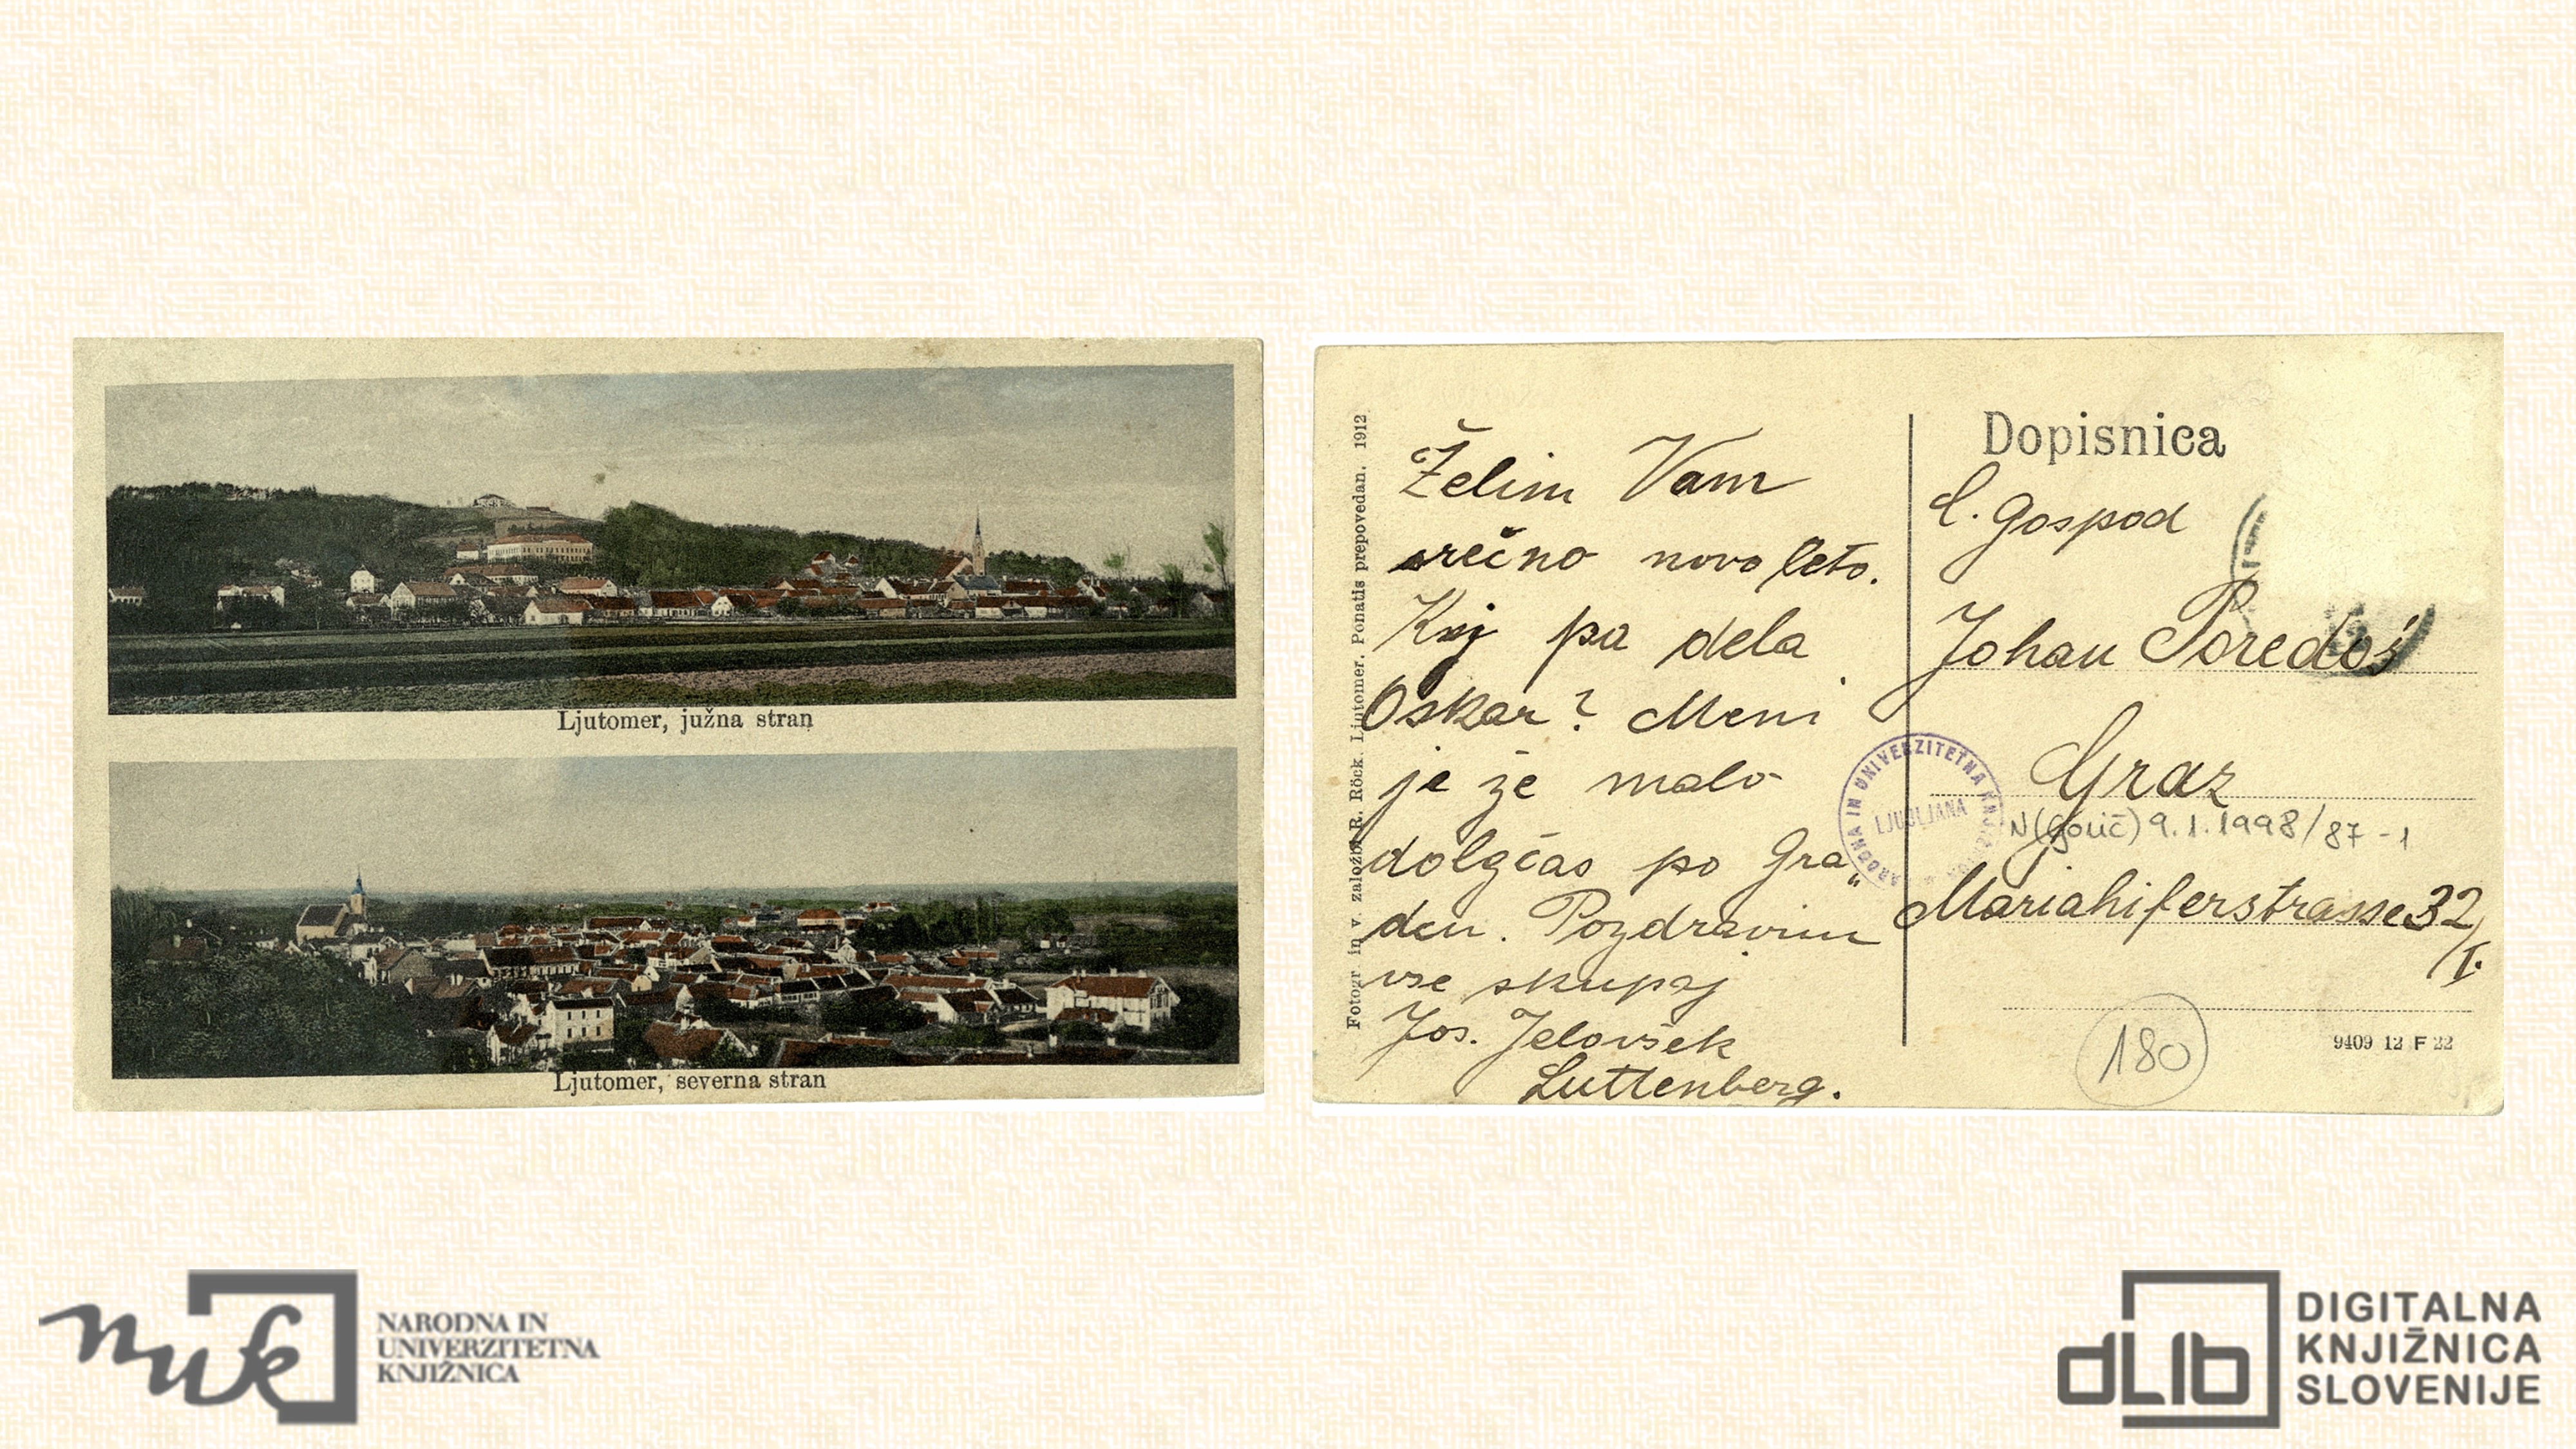 Ljutomer, južna stran
Ljutomer, severna stran
Fotogr. in v. založbi R. Röck. Ljutomer. Ponatis prepovedan. 1912
Želim Vam
srečno novo leto.
Kaj pa dela
Oskar? Meni
je že malo
dolgčas po Gra„
dcu. Pozdravim
vse skupaj
Jos. Jelovšek
Luttenberg.
Dopisnica
C. Gospod
Johan Poredoš
Graz
N(Gorič) 9.1.1998/87-1
Mariahilferstrasse 32/I.
180
9409 12 F 22
NARODNA IN UNIVERZITETNA KNJIŽNICA
LJUBLJANA
nuk
NARODNA IN
UNIVERZITETNA
KNJIŽNICA
dLib
DIGITALNA
KNJIŽNICA
SLOVENIJE